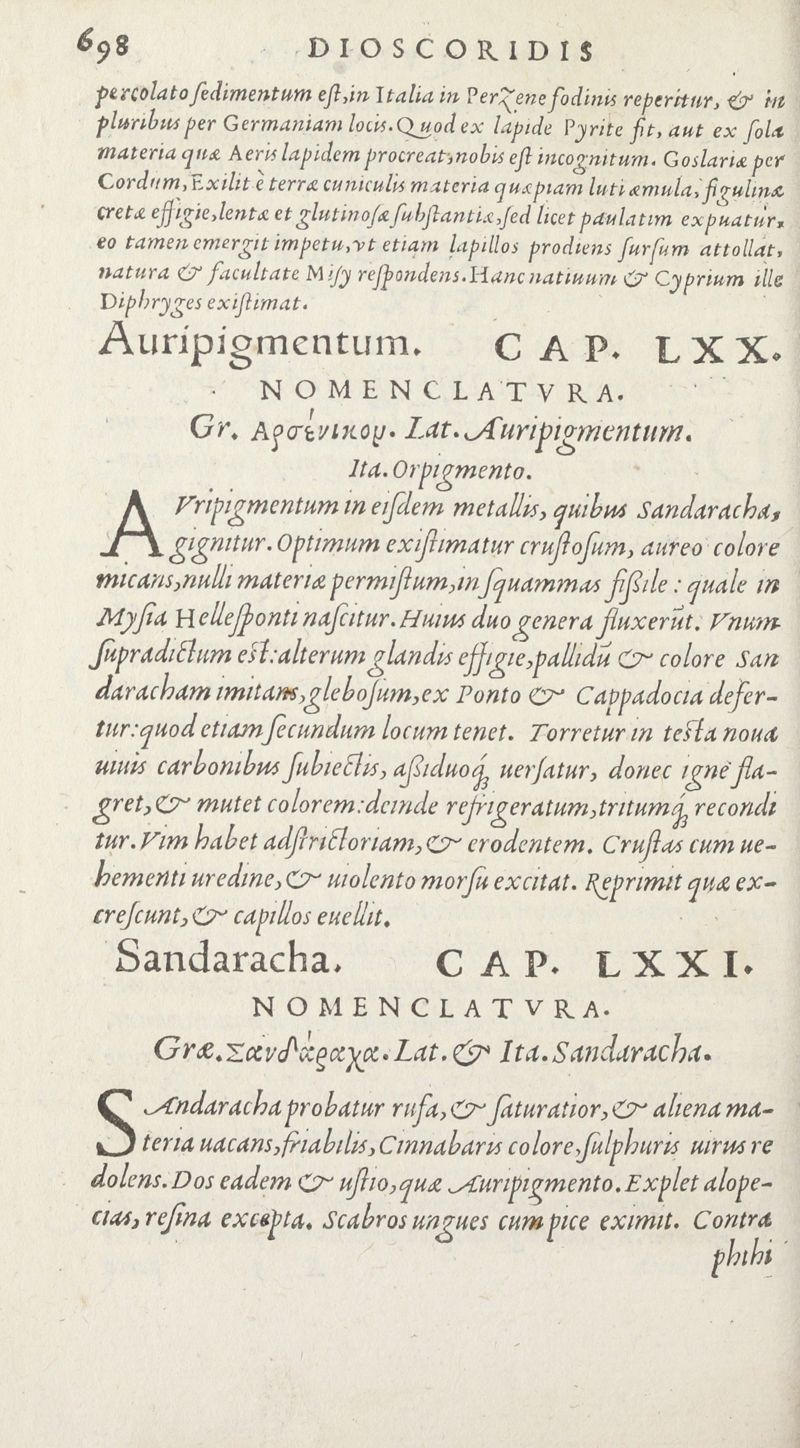 698 DIOSCORIDIS
percolato ſedimentum eſt, in Italia in Perzene fodinis reperitur, & in
pluribus per Germaniam locis. Quod ex lapide Pyrite fit, aut ex ſola
materia quæ Aeris lapidem procreat, nobis eſt incognitum. Goslariæ per
Cordum, Exilit è terræ cuniculis materia quæpiam luti æmula, figulinæ
cretæ effigie, lentæ et glutinoſæ ſubſtantiæ, ſed licet paulatim expuatur,
eo tamen emergit impetu, vt etiam lapillos prodiens ſurſum attollat,
natura & facultate Miſy reſpondens. Hanc natiuum & Cyprium ille
Diphryges exiſtimat.
Auripigmentum. CAP. LXX.
NOMENCLATVRA.
Gr. Αρσένικον. Lat. Auripigmentum.
Ita. Orpigmento.
AVripigmentum in eiſdem metallis, quibus Sandaracha,
gignitur. Optimum exiſtimatur cruſtoſum, aureo colore
micans, nulli materiæ permiſtum, in ſquammas fißile : quale in
Myſia Helleſponti naſcitur. Huius duo genera fluxerũt. Vnum
ſupradictum eſt: alterum glandis effigie, pallidũ & colore San
daracham imitans, gleboſum, ex Ponto & Cappadocia defer-
tur: quod etiam ſecundum locum tenet. Torretur in teſta noua
uiuis carbonibus ſubiectis, aßiduoq; uerſatur, donec igne fla-
gret, & mutet colorem: deinde refrigeratum, tritumq; recondi
tur. Vim habet adſtrictoriam, & erodentem. Cruſtas cum ue-
hementi uredine, & uiolento morſu excitat. Reprimit quæ ex-
creſcunt, & capillos euellit.
Sandaracha. CAP. LXXI.
NOMENCLATVRA.
Græ. Σανδάραχα. Lat. & Ita. Sandaracha.
SAndaracha probatur rufa, & ſaturatior, & aliena ma-
teria uacans, friabilis, Cinnabaris colore, ſulphuris uirus re
dolens. Dos eadem & uſtio, quæ Auripigmento. Explet alope-
cias, reſina excepta. Scabros ungues cum pice eximit. Contra
phthi